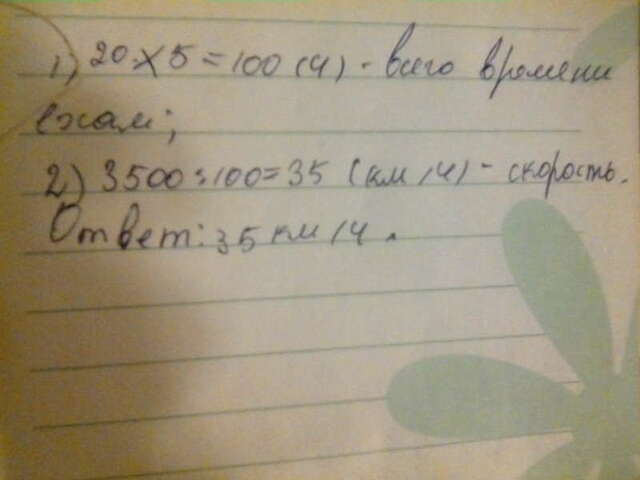 1) 20 × 5 = 100 (ч) - всего времени
ехал;
2) 3500 : 100 = 35 (км/ч) - скорость.
Ответ: 35 км/ч.